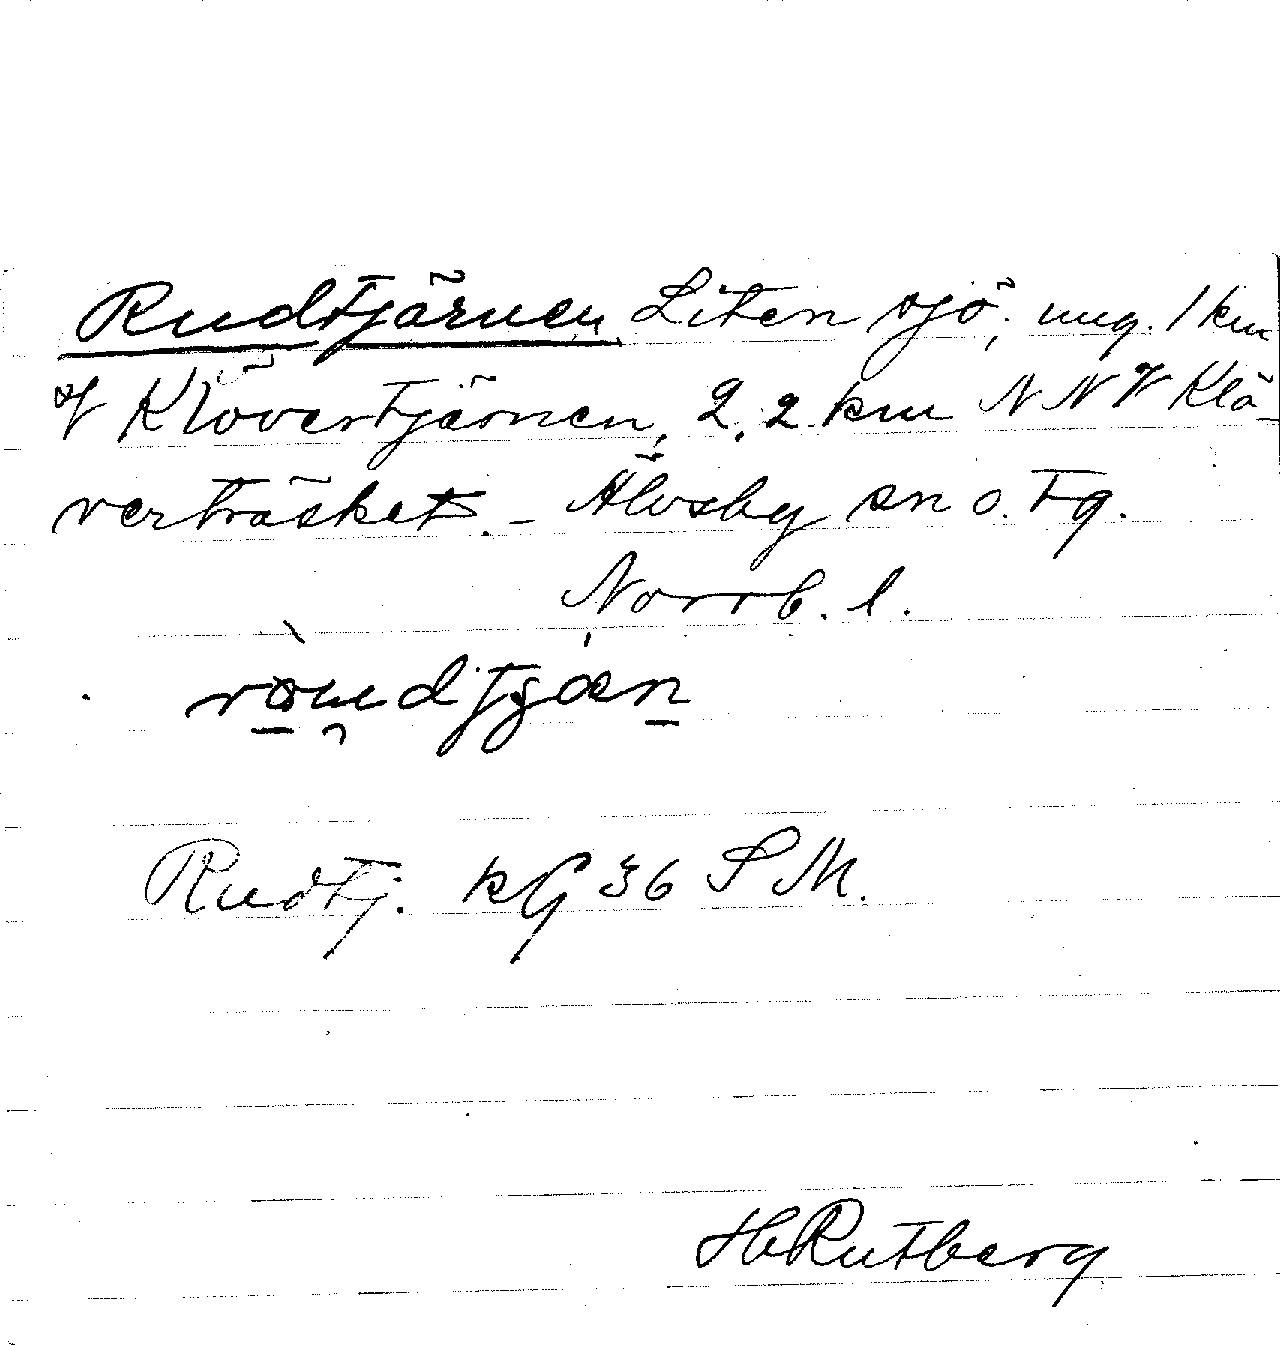 Rudtjärnen Liten sjö, ung. 1 km
V Klövertjärnen, 2,2 km NNV Klö-
verträsket. - Älvsby sn o. tg.
Norrb. l.
Rudtj. kG 36 SM.
H Rutberg